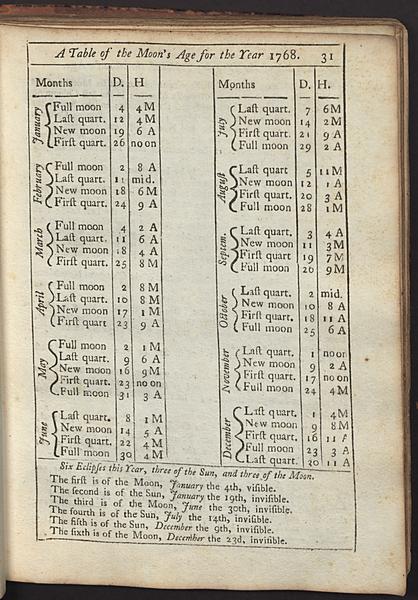 A Table of the Moon's Age for the Year 1768. 31
Months D. H
January
Full moon 4 4 M
Last quart. 12 4 M
New moon 19 6 A
First quart. 26 noon
February
Full moon 2 8 A
Last quart. 11 mid.
New moon 18 6 M
First quart. 24 9 A
March
Full moon 4 2 A
Last quart. 11 6 A
New moon 18 4 A
First quart. 25 8 M
April
Full moon 2 8 M
Last quar. 10 8 M
New moon 17 1 M
First quart 23 9 A
May
Full moon 2 1 M
Last quart. 9 6 A
New moon 16 9 M
First quart. 23 noon
Full moon 31 3 A
June
Last quart. 8 1 M
New moon 14 5 A
First quart. 22 4 M
Full moon 30 4 M
Months D. H.
July
Last quart. 7 6 M
New moon 14 2 M
First quart. 21 9 A
Full moon 29 2 A
August
Last quart 5 11 M
New moon 12 1 A
First quart. 20 3 A
Full moon 28 1 M
Septem.
Last quart. 3 4 A
New moon 11 3 M
First quart 19 7 M
Full moon 26 9 M
October
Last quart. 2 mid.
New moon 10 8 A
First quart. 18 11 A
Full moon 25 6 A
November
Last quart. 1 noon
New moon 9 2 A
First quart. 17 noon
Full moon 24 4 M
December
Last quart. 1 4 M
New moon 9 8 M
First quart. 16 11
Full moon 23 3 A
Last quart. 30 11 A
Six Eclipses this Year, three of the Sun, and three of the Moon.
The first is of the Moon, January the 4th, visible.
The second is of the Sun, January the 19th, invisible.
The third is of the Moon, June the 30th, invisible.
The fourth is of the Sun, July the 14th, invisible.
The fifth is of the Sun, December the 9th, invisible.
The sixth is of the Moon, December the 23d, invisible.